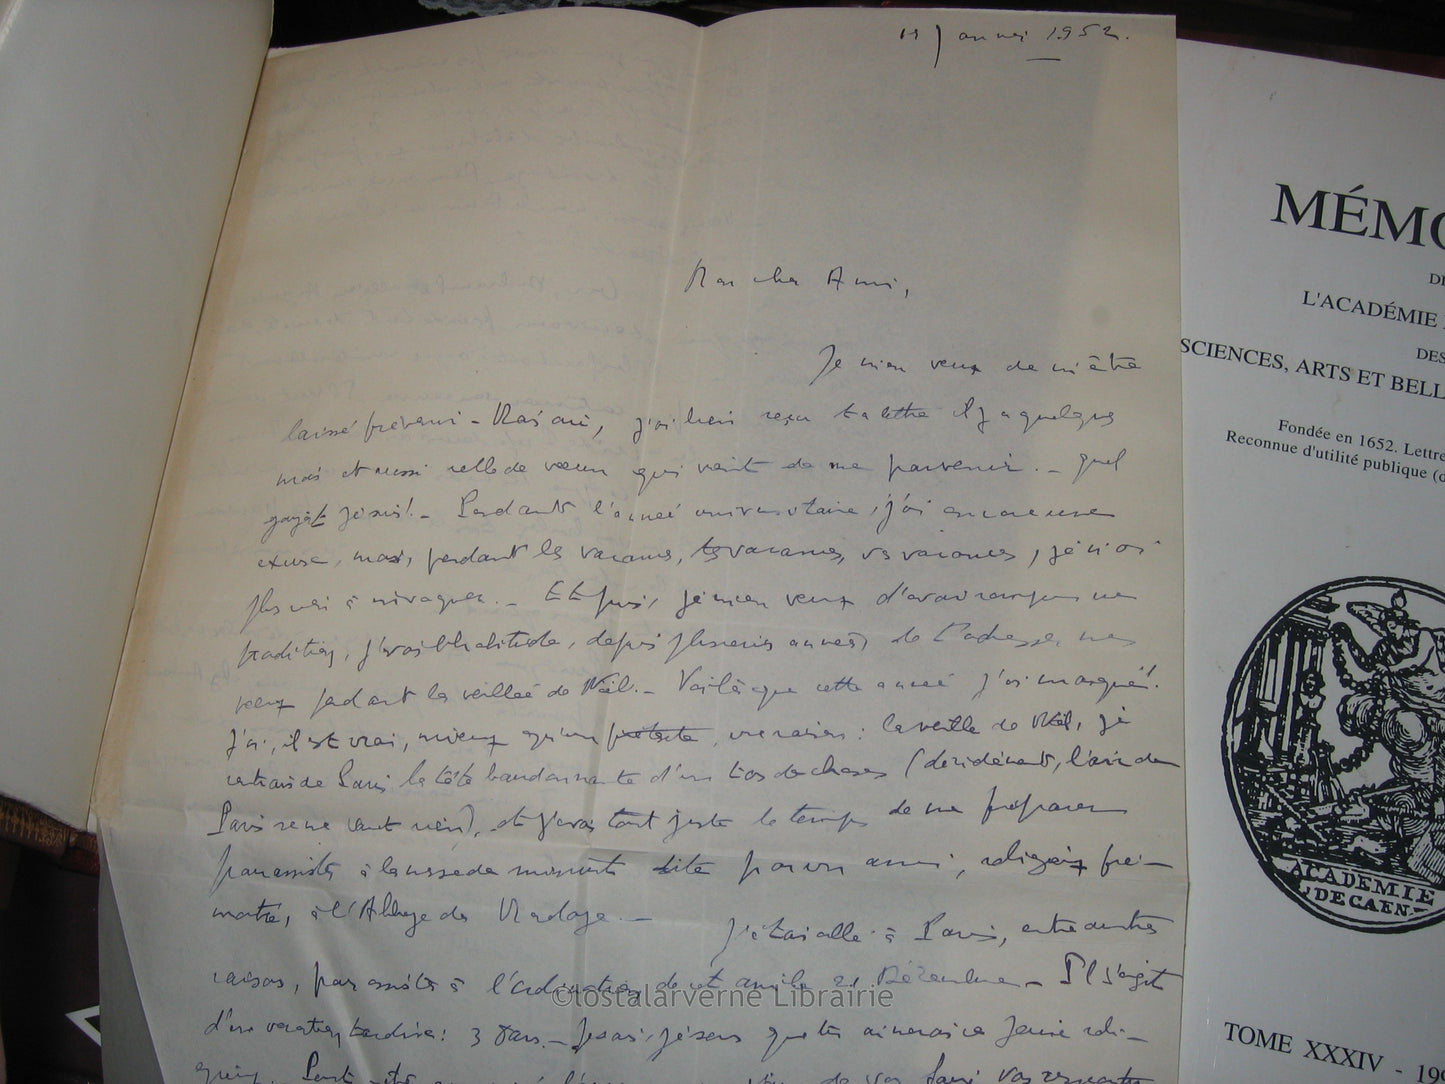 11 Janvier 1952.
Mon cher Ami,
Je m'en veux de m'être
laissé prévenir - Mais oui, j'ai bien reçu ta lettre il y a quelques
mois et aussi celle de vœux qui vient de me parvenir. - Quel
Jésus! - Pendant l'année universitaire, j'ai encore une
excuse, mais, pendant les vacances, tes vacances, vos vacances, je n'ai
plus rien à invoquer. - Et puis, je m'en veux d'avoir rompu une
tradition, j'avais l'habitude, depuis plusieurs années de t'adresser mes
vœux pendant la veillée de Noël. - Voilà que cette année j'ai manqué!
J'ai, il est vrai, mieux qu'un prétexte, une raison: la veille de Noël, je
rentrais de Paris la tête bourdonnante d'un tas de choses (décidément, l'air de
Paris ne me vaut rien), et j'avais tout juste le temps de me préparer
pour assister à la messe de minuit dite par un ami, religieux pré-
montré, à l'Abbaye de Mondaye. -
J'étais allé à Paris, entre autres
raisons, pour assister à l'Ordination de cet ami le 21 Décembre - Il s'agit
d'une vocation tardive: 3 ans. - Je sais, je sens que tu aimerais ce jeune reli-
gieux.
©lostalarverne Librairie
MÉMO
DE
L'ACADÉMIE
DES
SCIENCES, ARTS ET BELL
Fondée en 1652. Lettre
Reconnue d'utilité publique (d
ACADEMIE
DE CAEN
TOME XXXIV - 199